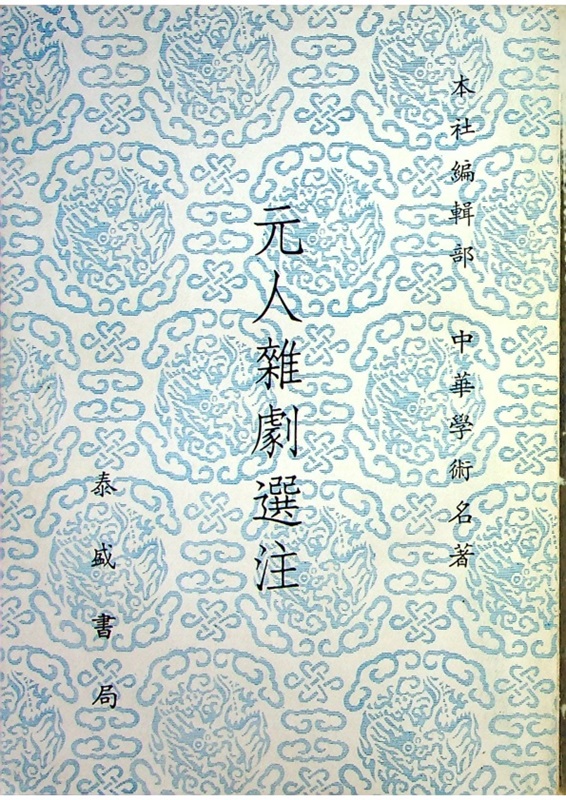 本社編輯部 中華學術名著
元人雜劇選注
泰盛書局